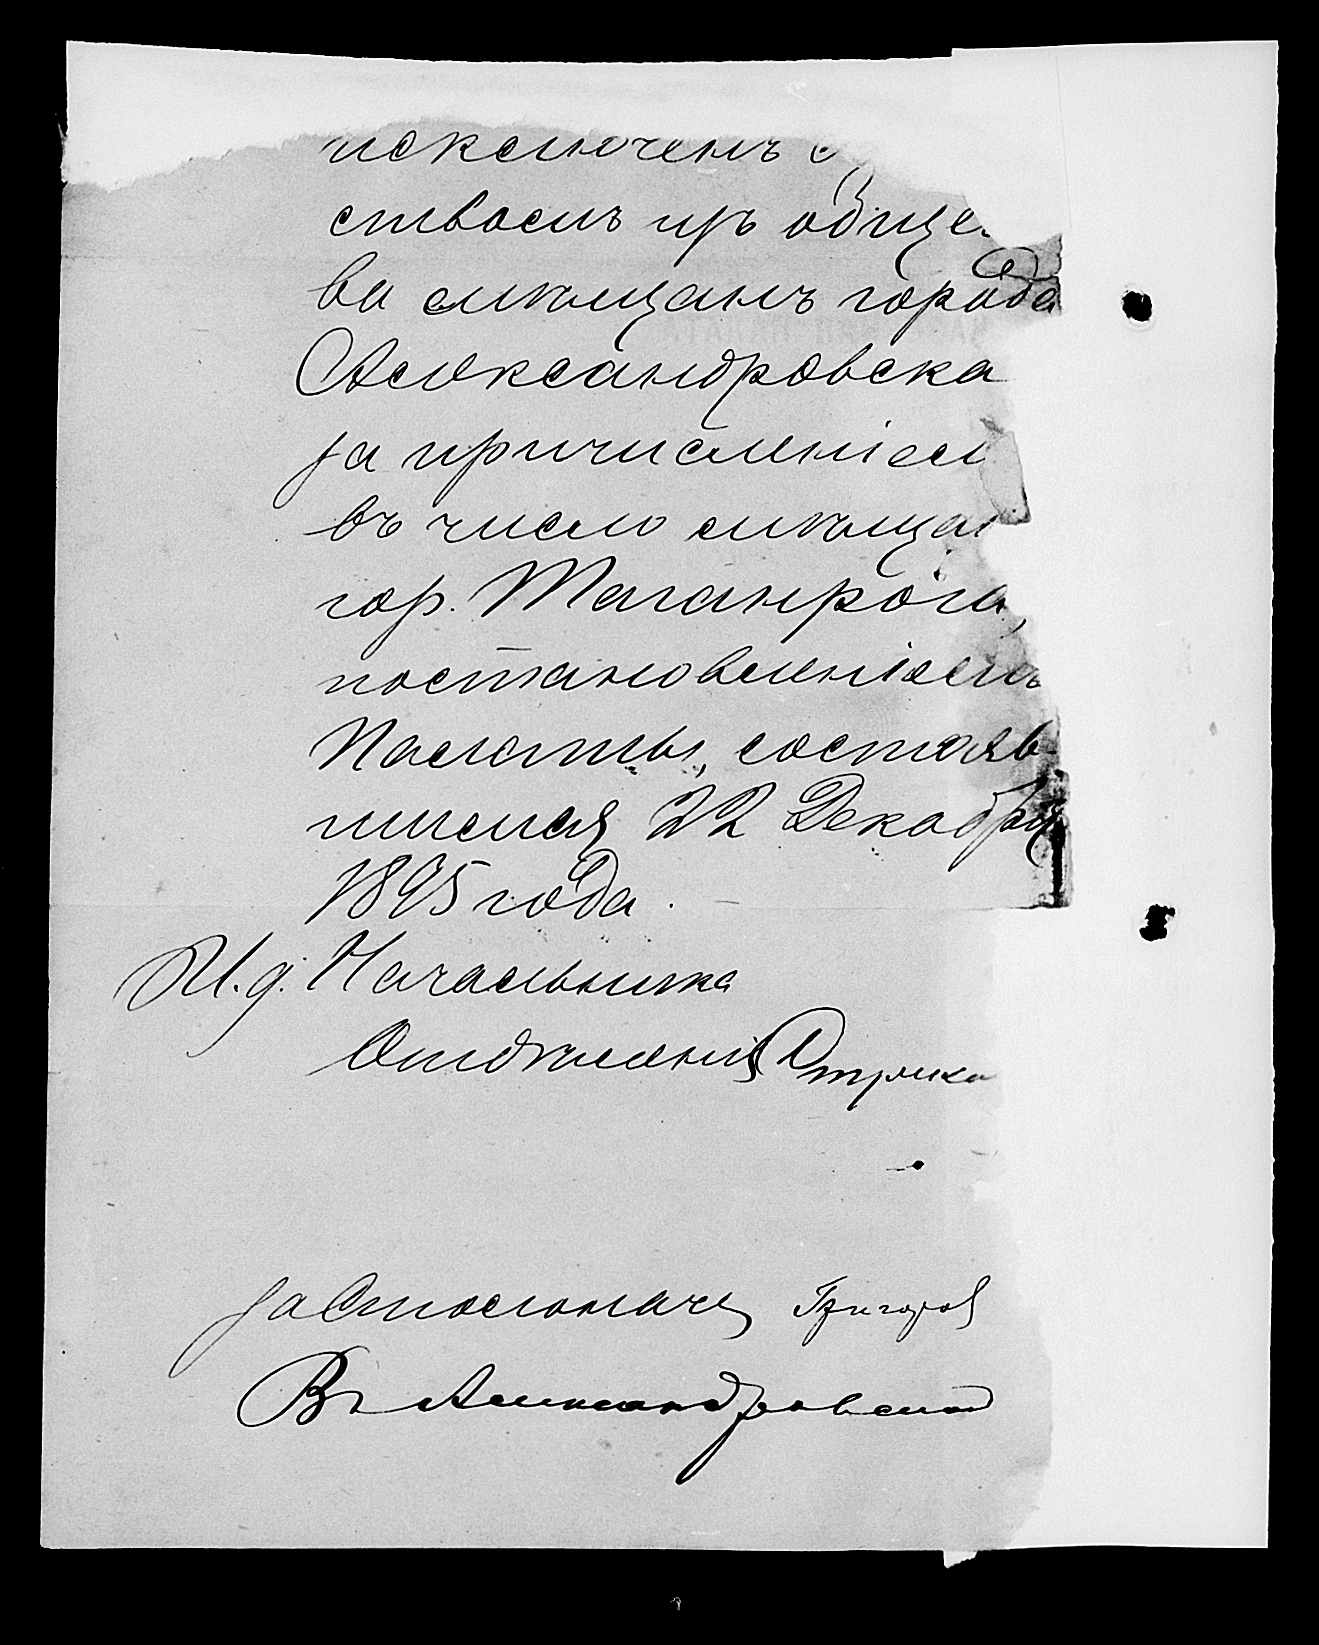 исключенъ с
ствомъ изъ общес
ва мѣщанъ города
Александровска
за причисленіем
въ число мѣщан
гор. Таганрога,
постановленіемъ
Палаты, состояв-
шимся 22 Декабря
1895 года.
И. д. Начальника
Отдѣленія
за Столоначе Григоров
В Александровской